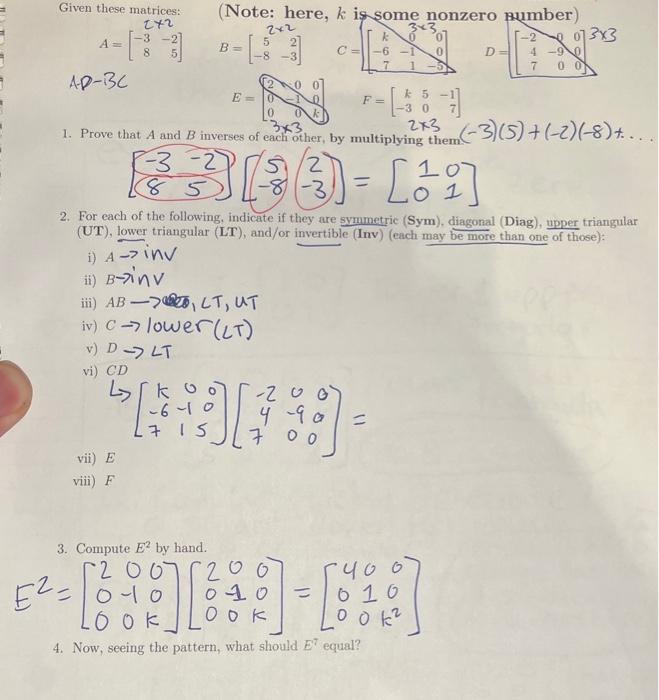 Given these matrices: (Note: here, k is some nonzero number)
2x2 2x2 3x3 3x3
A = [-3 -2
8 5]
B = [5 2
-8 -3]
C = [k 0 0
-6 -1 0
7 1 -5]
D = [-2 0 0
4 -9 0
7 0 0]
AD-BC
E = [2 0 0
0 -1 0
0 0 k]
3x3
F = [k 5 -1
-3 0 7]
2x3
1. Prove that A and B inverses of each other, by multiplying them. (-3)(5)+(-2)(-8)+...
[-3 -2
8 5] [5 2
-8 -3] = [1 0
0 1]
2. For each of the following, indicate if they are symmetric (Sym), diagonal (Diag), upper triangular
(UT), lower triangular (LT), and/or invertible (Inv) (each may be more than one of those):
i) A → inv
ii) B → inv
iii) AB → , LT, UT
iv) C → lower (LT)
v) D → LT
vi) CD
↳ [k 0 0
-6 -1 0
7 1 5] [-2 0 0
4 -9 0
7 0 0] =
vii) E
viii) F
3. Compute E² by hand.
E² = [2 0 0
0 -1 0
0 0 k] [2 0 0
0 -1 0
0 0 k] = [4 0 0
0 1 0
0 0 k²]
4. Now, seeing the pattern, what should E⁷ equal?